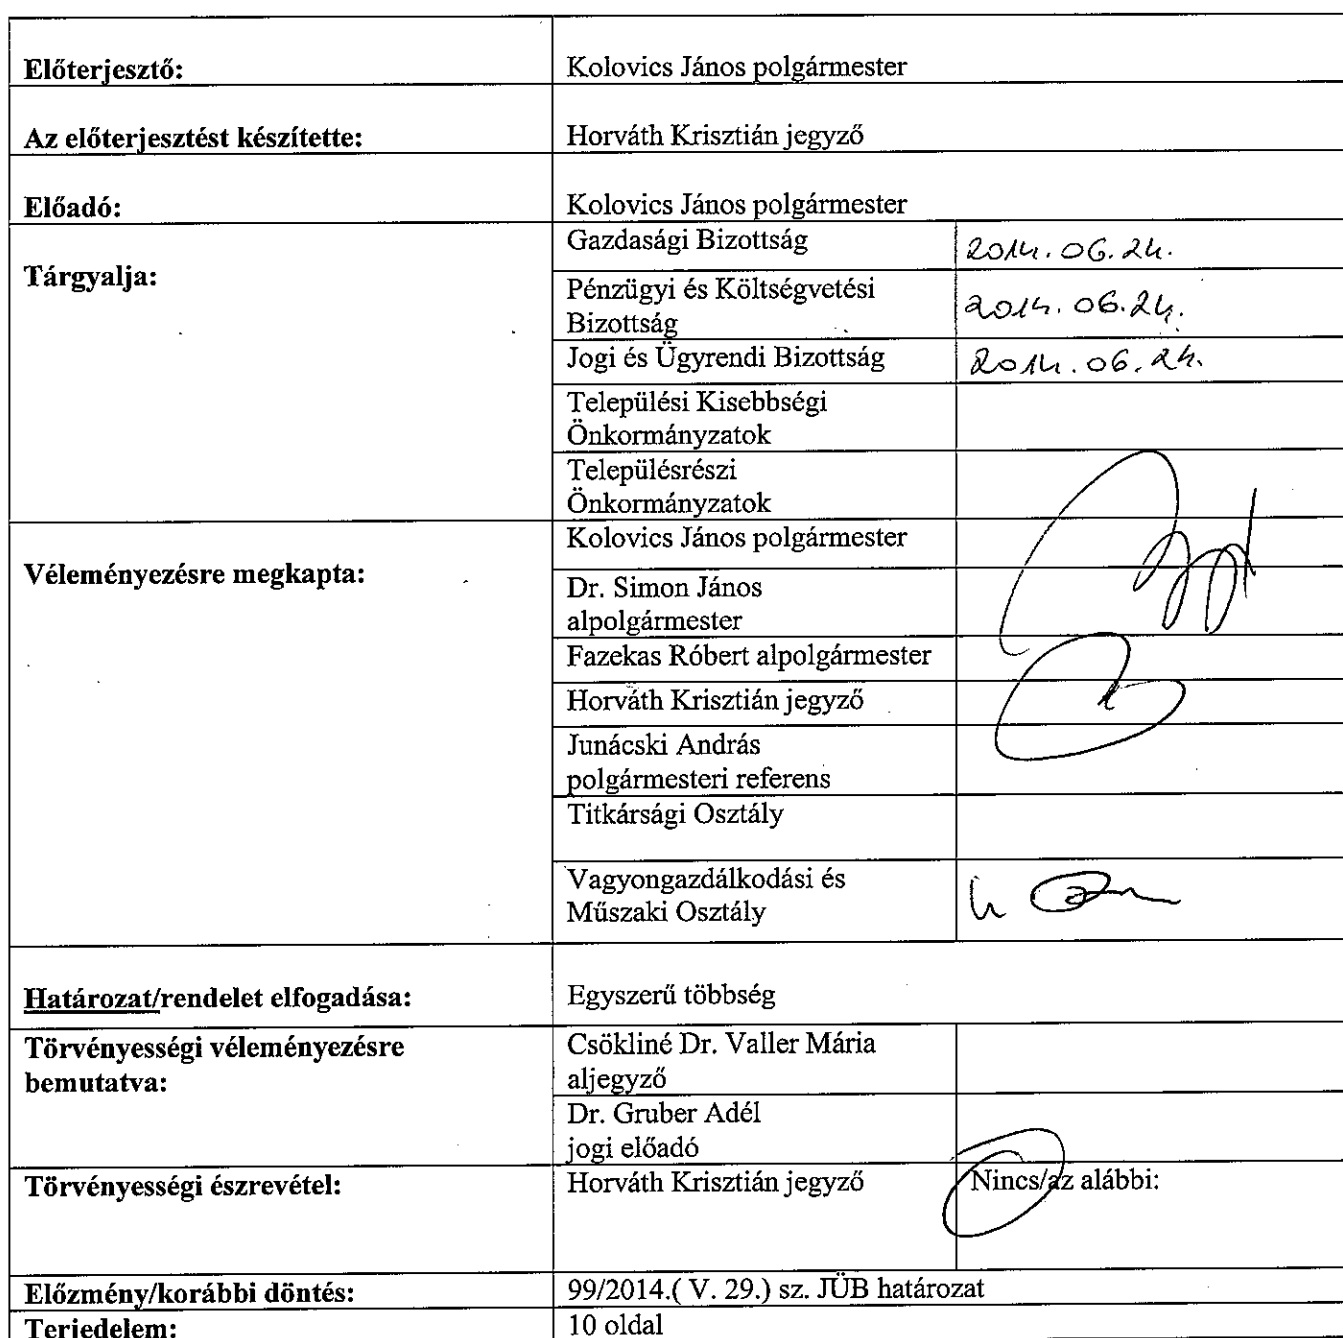 Előterjesztő: Kolovics János polgármester
Az előterjesztést készítette: Horváth Krisztián jegyző
Előadó: Kolovics János polgármester
Tárgyalja: Gazdasági Bizottság 2014.06.24.
Pénzügyi és Költségvetési
Bizottság 2014.06.24.
Jogi és Ügyrendi Bizottság 2014.06.24.
Települési Kisebbségi
Önkormányzatok
Településrészi
Önkormányzatok
Véleményezésre megkapta: Kolovics János polgármester
Dr. Simon János
alpolgármester
Fazekas Róbert alpolgármester
Horváth Krisztián jegyző
Junácski András
polgármesteri referens
Titkársági Osztály
Vagyongazdálkodási és
Műszaki Osztály
Határozat/rendelet elfogadása: Egyszerű többség
Törvényességi véleményezésre
bemutatva:
Csökliné Dr. Valler Mária
aljegyző
Dr. Gruber Adél
jogi előadó
Törvényességi észrevétel: Horváth Krisztián jegyző Nincs/az alábbi:
Előzmény/korábbi döntés: 99/2014.( V. 29.) sz. JÜB határozat
Terjedelem: 10 oldal